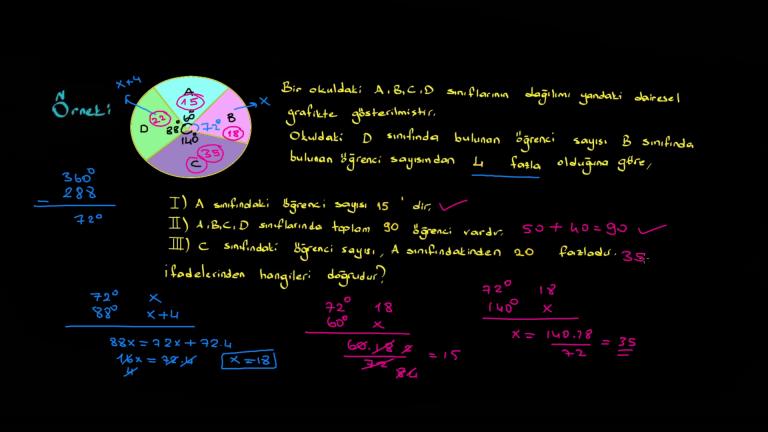 x+4
A
15
60°
x
Örnek:
22
B
D
88°
72°
18
140°
35
C
Bir okuldaki A,B,C,D sınıflarının dağılımı yandaki dairesel
grafikte gösterilmiştir.
Okuldaki D sınıfında bulunan öğrenci sayısı B sınıfında
bulunan öğrenci sayısından 4 fazla olduğuna göre,
360°
- 288
72°
I) A sınıfındaki öğrenci sayısı 15 'dir.
II) A,B,C,D sınıflarında toplam 90 öğrenci vardır. 50 + 40 = 90
III) C sınıfındaki öğrenci sayısı, A sınıfındakinden 20 fazladır. 35
ifadelerinden hangileri doğrudur?
72° x
88° x+4
88x = 72x + 72.4
16x = 72.4
4
x = 18
72° 18
60° x
60.18
72
= 15
72° 18
140° x
x = 140.18
72
= 35